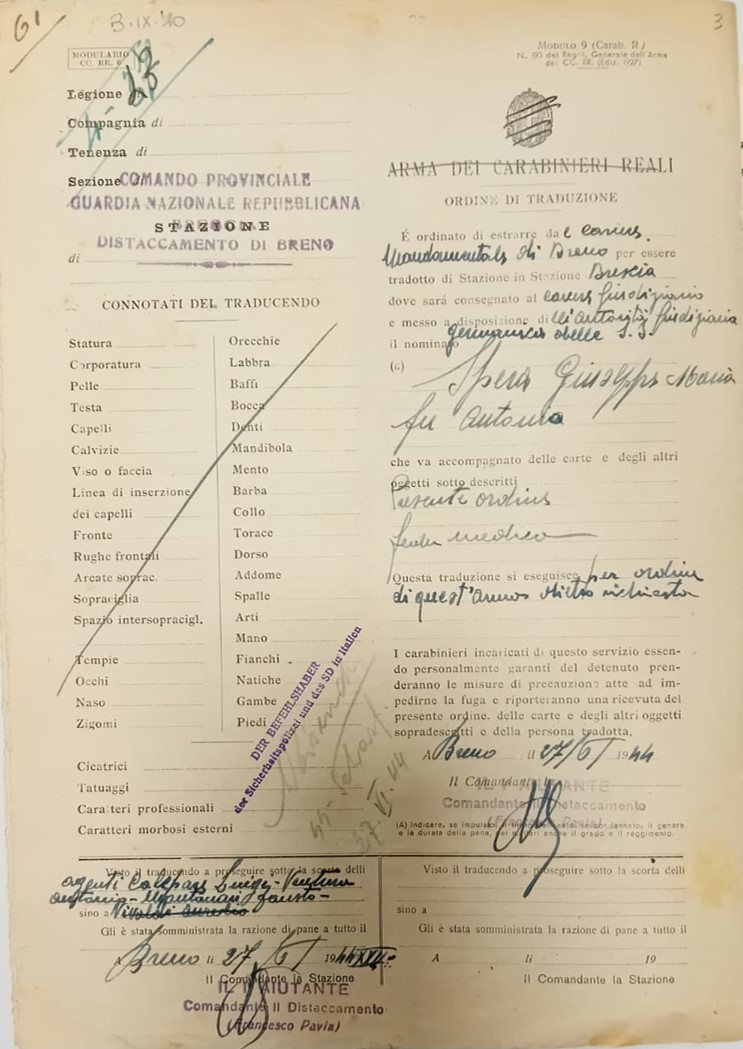 61
3
MODULARIO
CC. RR. 6
Legione di
Compagnia di
Tenenza di
Sezione
COMANDO PROVINCIALE
GUARDIA NAZIONALE REPUBBLICANA
STAZIONE
DISTACCAMENTO DI BRENO
di
CONNOTATI DEL TRADUCENDO
Statura
Corporatura
Pelle
Testa
Capelli
Calvizie
Viso o faccia
Linea di inserzione
dei capelli
Fronte
Rughe frontali
Arcate soprac.
Sopraciglia
Spazio intersopracigl.
Tempie
Occhi
Naso
Zigomi
Orecchie
Labbra
Baffi
Bocca
Denti
Mandibola
Mento
Barba
Collo
Torace
Dorso
Addome
Spalle
Arti
Mano
Fianchi
Natiche
Gambe
Piedi
Cicatrici
Tatuaggi
Caratteri professionali
Caratteri morbosi esterni
DER BEFEHLSHABER
der Sicherheitspolizei und des SD in Italien
27. VI. 44
Visto il traducendo a proseguire sotto la scorta delli
agenti Luigi - Ventura
Antonio - Montanari Fausto -
sino a Vivaldi Aurelio
Gli è stata somministrata la razione di pane a tutto il
Breno li 27/6/1944 XXII
Il Comandante la Stazione
IL I° AIUTANTE
Comandante Il Distaccamento
(Francesco Pavia)
MODULO 9 (Carab. R.)
N. 193 del Regol. Generale dell'Arma
dei CC. RR. (Ediz. 1927)
ARMA DEI CARABINIERI REALI
ORDINE DI TRADUZIONE
É ordinato di estrarre dal carcere
Mandamentale di Breno per essere
tradotto di Stazione in Stazione Brescia
dove sará consegnato al carcere Giudiziario
e messo a disposizione dell'Autorità Giudiziaria
il nominato germanica delle S.S.
Spera Giuseppe Maria
fu Antonio
che va accompagnato delle carte e degli altri
oggetti sotto descritti
Presente ordine
fede medica
Questa traduzione si eseguisce per ordine
di quest'
I carabinieri incaricati di questo servizio essen-
do personalmente garanti del detenuto pren-
deranno le misure di precauzione atte ad im-
pedirne la fuga e riporteranno una ricevuta del
presente ordine, delle carte e degli altri oggetti
sopradescritti e della persona tradotta.
A Breno il 27/6/1944
Il Comandante
IL I° AIUTANTE
Comandante Il Distaccamento
(Francesco Pavia)
Visto il traducendo a proseguire sotto la scorta delli
sino a
Gli è stata somministrata la razione di pane a tutto il
A li 19
Il Comandante la Stazione